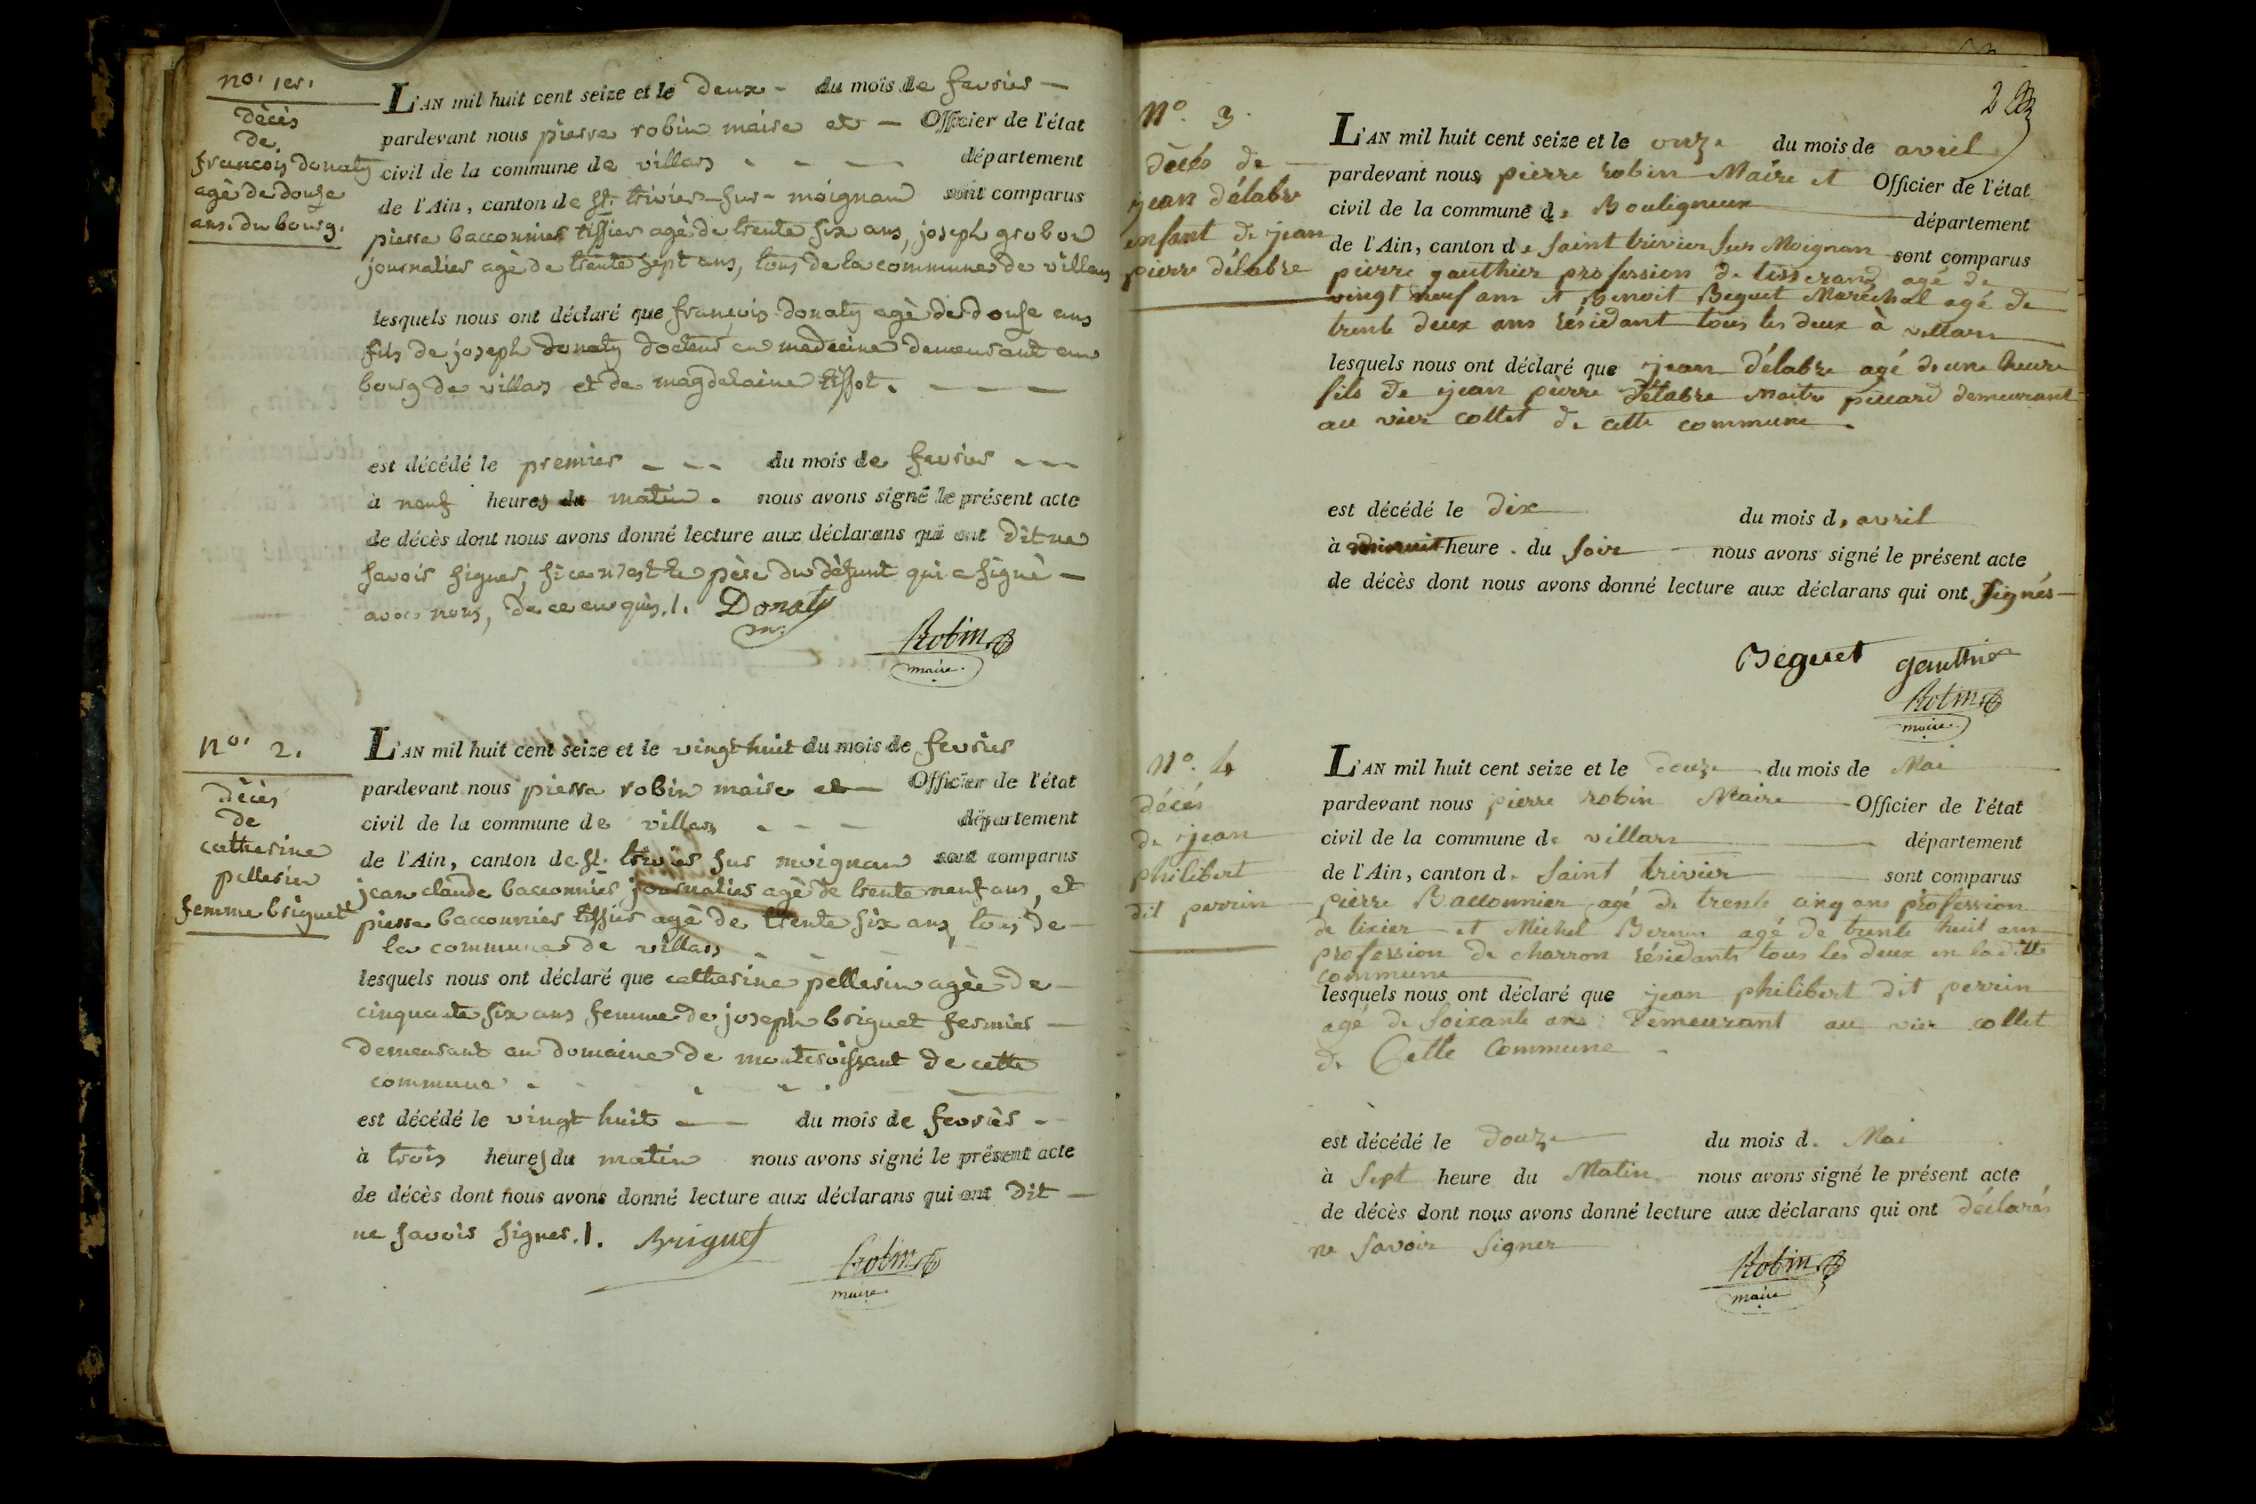 no. 1er.
décès
de
francois donaty
agè de douse
ans. du bourg.
L'AN mil huit cent seize et le deux - du mois de fevrier -
pardevant nous pierre robin maire et - Officier de l'état
civil de la commune de villars - - - département
de l'Ain, canton de st. trivier-sur-moignan sont comparus
pierre bacconnier tissier agè de trente six ans, joseph grobon
journalier agè de trente sept ans, tous de la commune de villars
lesquels nous ont déclaré que françois donaty agè de douse ans
fils de joseph donaty docteur en medecine demeurant au
bourg de villars et de magdelaine tissot. - - -
est décédé le premier - - - du mois de fevrier - - -
à neuf heures du matin. nous avons signé le présent acte
de décès dont nous avons donné lecture aux déclarans qui ont dit ne
savoir signer, si ce n'est le père du dèfunt qui a signè -
avec nous, de ce enquis./. Donaty
Robin
maire.
no. 2.
décès
de
catherine
pellerin
femme briguet
L'AN mil huit cent seize et le vingt huit du mois de fevrier
pardevant nous pierre robin maire et - Officier de l'état
civil de la commune de villars - - - département
de l'Ain, canton de st. trivier sur moignan sont comparus
jean claude bacconnier journalier agè de trente neuf ans, et
pierre bacconnier tissier agè de trente six ans, tous de -
la commune de villars - - -
lesquels nous ont déclaré que catherine pellerin agèe de -
cinquante six ans femme de joseph briguet fermier -
demeurant au domaine de montroissant de cette
commune - - -
est décédé le vingt huit - du mois de fevrièr - -
à trois heures du matin nous avons signé le présent acte
de décès dont nous avons donné lecture aux déclarans qui ont dit -
ne savoir signer./. Briguet
Robin
maire.
2
N°. 3.
dècés de
jean délabre
enfant de jean
pierre délabre
L'AN mil huit cent seize et le onze du mois de avril
pardevant nous pierre robin Maire et Officier de l'état
civil de la commune de Bouligneux département
de l'Ain, canton de saint trivier sur Moignan sont comparus
pierre gauthier profession de tisserand agé de
vingt neuf ans et Benoit Beguet Maréchal agé de
trente deux ans résidant tous les deux à villars
lesquels nous ont déclaré que jean délabre agé d'une heure
fils de jean pierre délabre maitre demeurant
au vier collet de cette commune.
est décédé le dix du mois d. avril
à minuit heure. du soir nous avons signé le présent acte
de décès dont nous avons donné lecture aux déclarans qui ont signés -
Béguet gauthier
Robin
maire
N°. 4
décés
de jean
philibert
dit perrin
L'AN mil huit cent seize et le douze du mois de Mai
pardevant nous pierre robin Maire Officier de l'état
civil de la commune de villars département
de l'Ain, canton d. saint trivier sont comparus
pierre Bacconnier agé de trente cinq ans profession
de tixier et Michel agé de trente huit ans
profession de charron résidants tous les deux en la ditte
commune
lesquels nous ont déclaré que jean philibert dit perrin
agé de soixante ans demeurant au vier collet
de Cette Commune -
est décédé le douze du mois d. Mai
à sept heure du Matin nous avons signé le présent acte
de décès dont nous avons donné lecture aux déclarans qui ont déclarés
ne savoir signer
Robin
maire